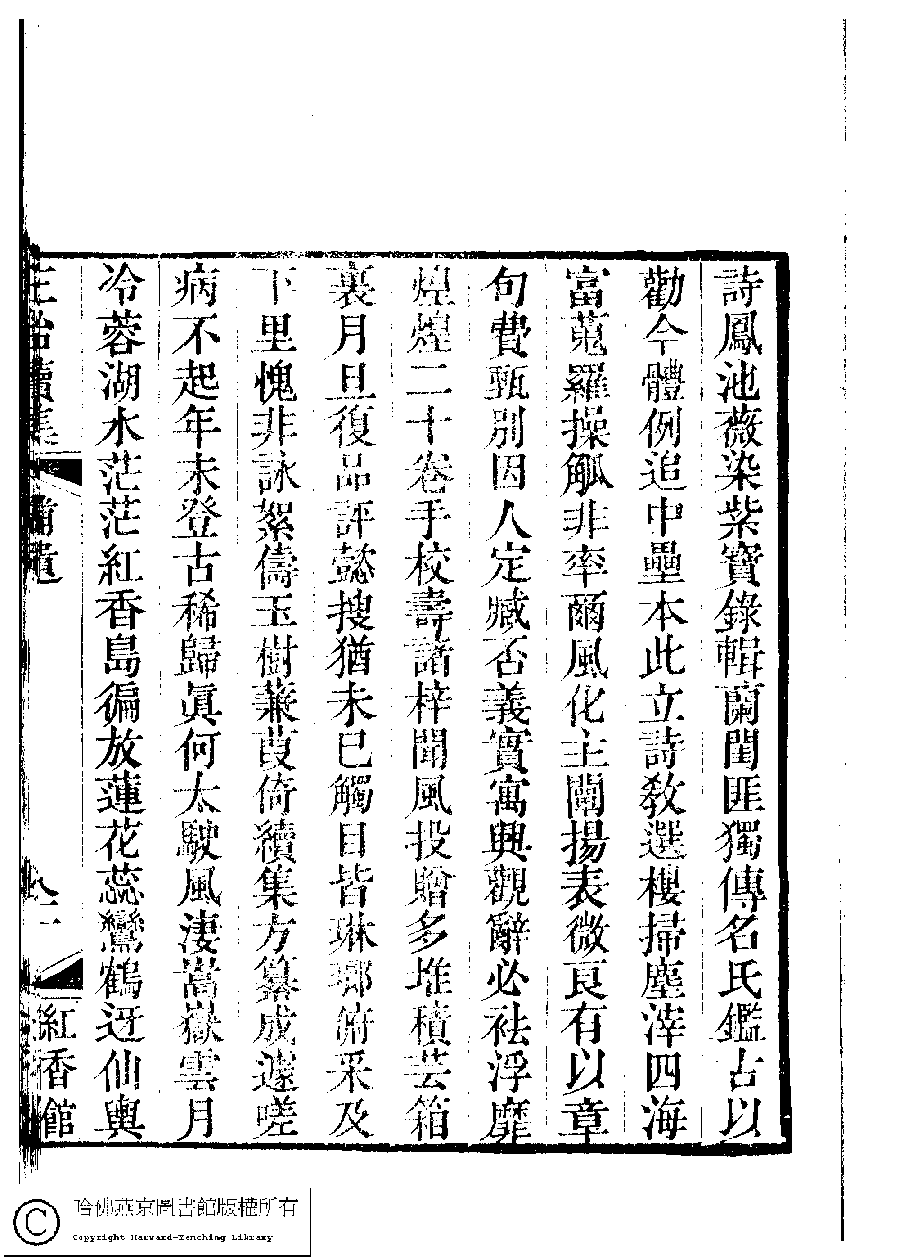 詩鳳池薇染紫寶錄輯蘭閨匪獨傳名氏鑑古以
勸今體例追中壘本此立詩敎選樓掃塵滓四海
富蒐羅操觚非率爾風化主闡揚表微良有以章
句費甄別因人定臧否義實寓興觀辭必袪浮靡
煌煌二十卷手校壽諸梓聞風投贈多堆積芸箱
裏月旦復品評懿搜猶未已觸目皆琳瑯俯采及
下里愧非詠絮儔玉樹蒹葭倚續集方纂成遽嗟
病不起年未登古稀歸眞何太駛風淒嵩嶽雲月
冷蓉湖水茫茫紅香島徧放蓮花蕊鸞鶴迓仙輿
正始續集
補遺
八十一
紅香館
哈佛燕京圖書館版權所有
Copyright Harvard-Yenching Library